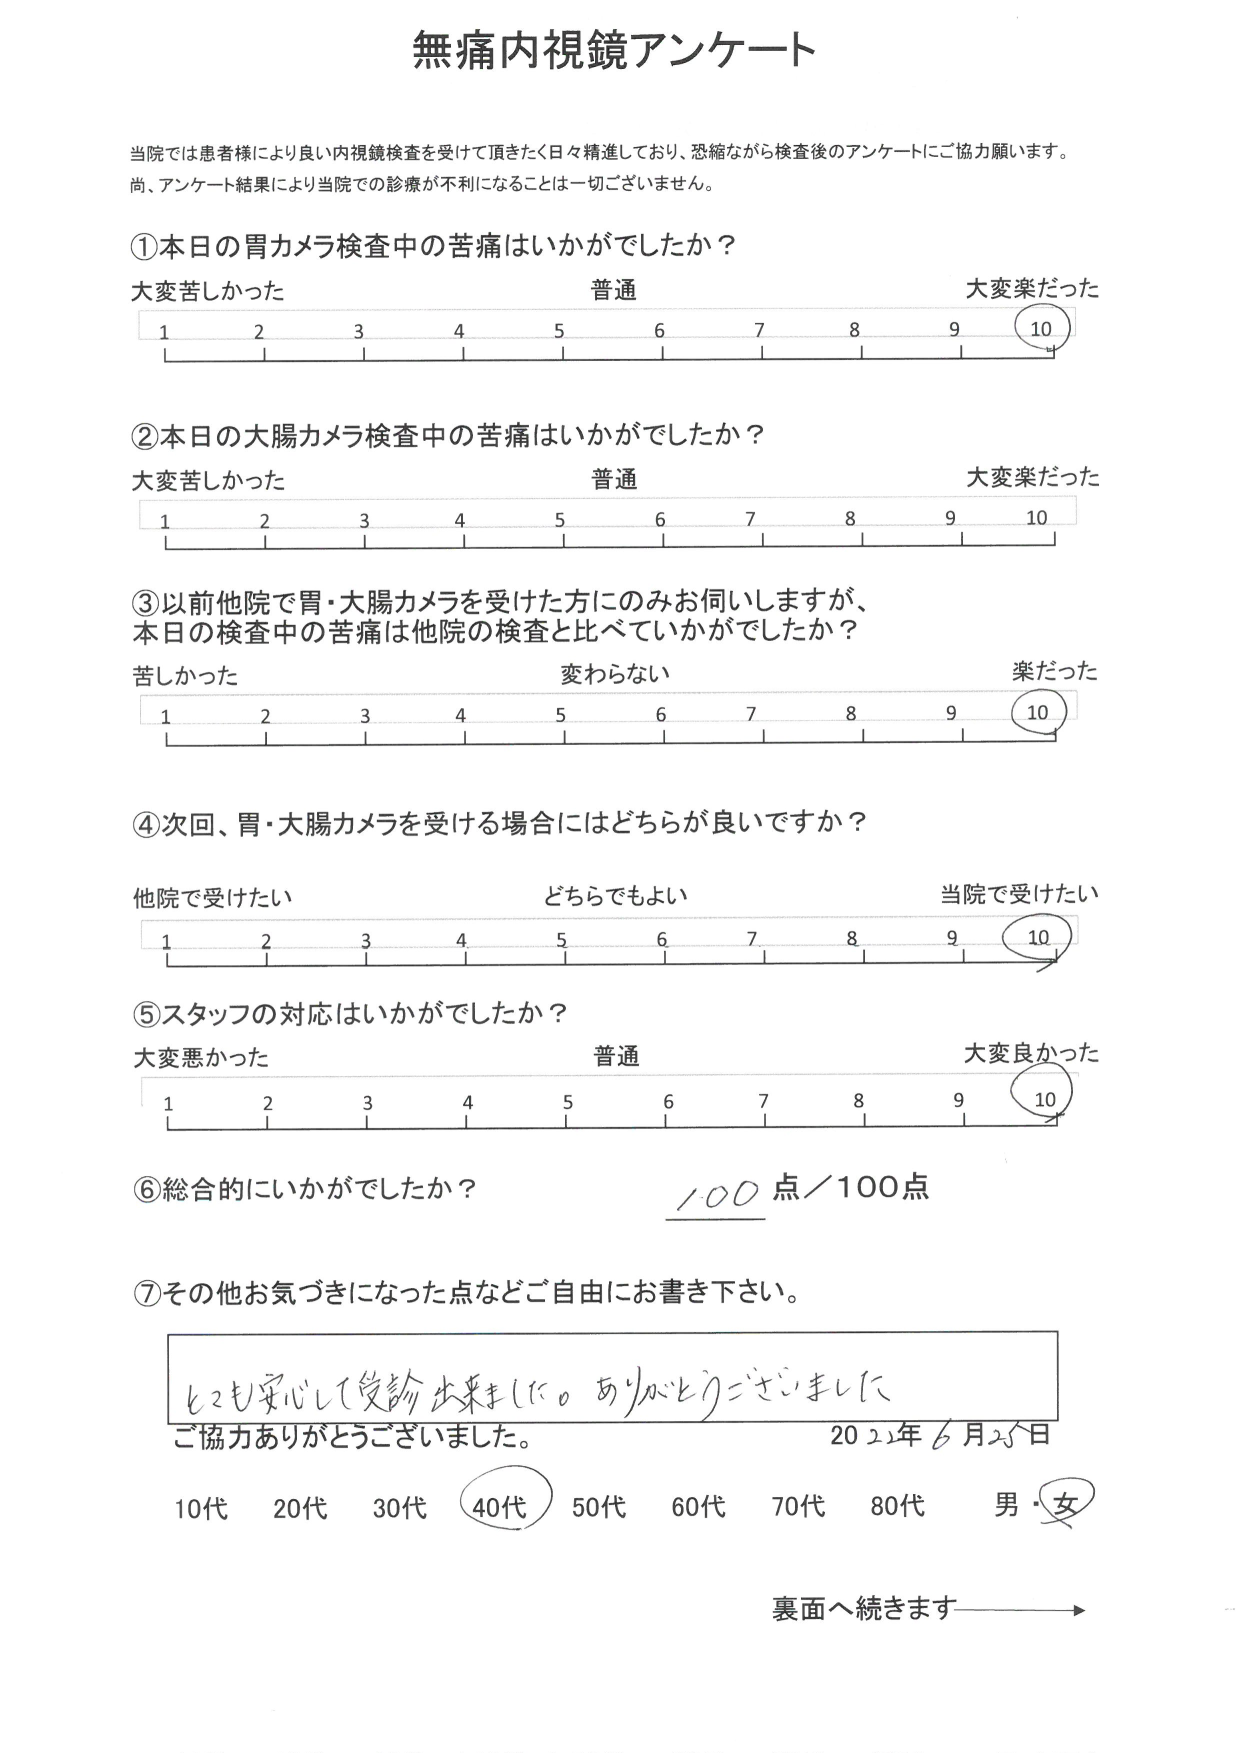 無痛内視鏡アンケート
当院では患者様により良い内視鏡検査を受けて頂きたく日々精進しており、恐縮ながら検査後のアンケートにご協力願います。
尚、アンケート結果により当院での診療が不利になることは一切ございません。
①本日の胃カメラ検査中の苦痛はいかがでしたか？
大変苦しかった 普通 大変楽だった
1 2 3 4 5 6 7 8 9 10
②本日の大腸カメラ検査中の苦痛はいかがでしたか？
大変苦しかった 普通 大変楽だった
1 2 3 4 5 6 7 8 9 10
③以前他院で胃・大腸カメラを受けた方にのみお伺いしますが、
本日の検査中の苦痛は他院の検査と比べていかがでしたか？
苦しかった 変わらない 楽だった
1 2 3 4 5 6 7 8 9 10
④次回、胃・大腸カメラを受ける場合にはどちらが良いですか？
他院で受けたい どちらでもよい 当院で受けたい
1 2 3 4 5 6 7 8 9 10
⑤スタッフの対応はいかがでしたか？
大変悪かった 普通 大変良かった
1 2 3 4 5 6 7 8 9 10
⑥総合的にいかがでしたか？ 100 点／100点
⑦その他お気づきになった点などご自由にお書き下さい。
とても安心して受診出来ました。ありがとうございました
ご協力ありがとうございました。 2022年6月25日
10代 20代 30代 40代 50代 60代 70代 80代 男・女
裏面へ続きます